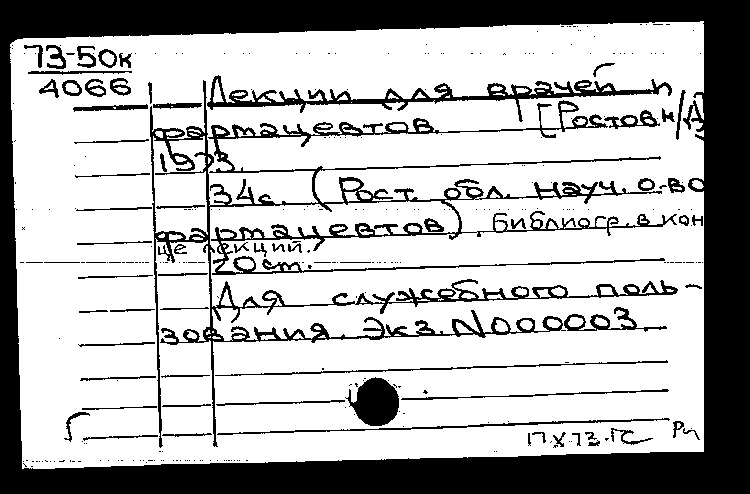 73-50к
4066
Лекции для врачей и
фармацевтов. [Ростов н/Д,
1973.
34с. (Рост. обл. науч. о-во
фармацевтов). Библиогр. в кон
це лекций.
20 ст.
Для служебного поль-
зования. Экз. N000003.
17.X.73.ГС